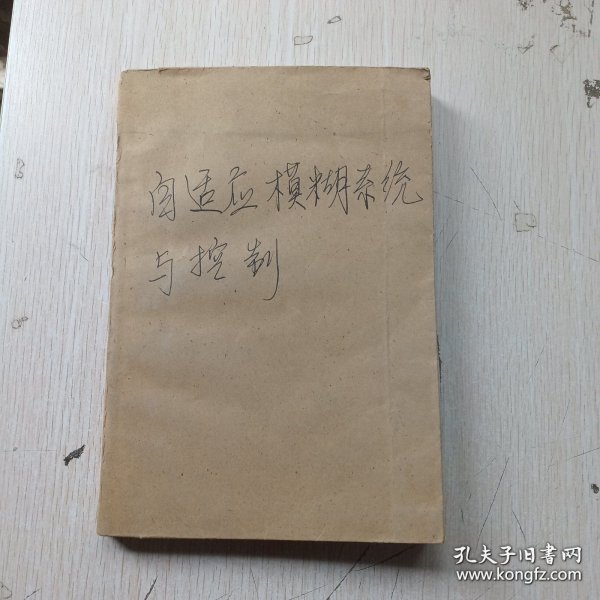 自适应模糊系统
与控制
孔夫子旧书网
www.kongfz.com